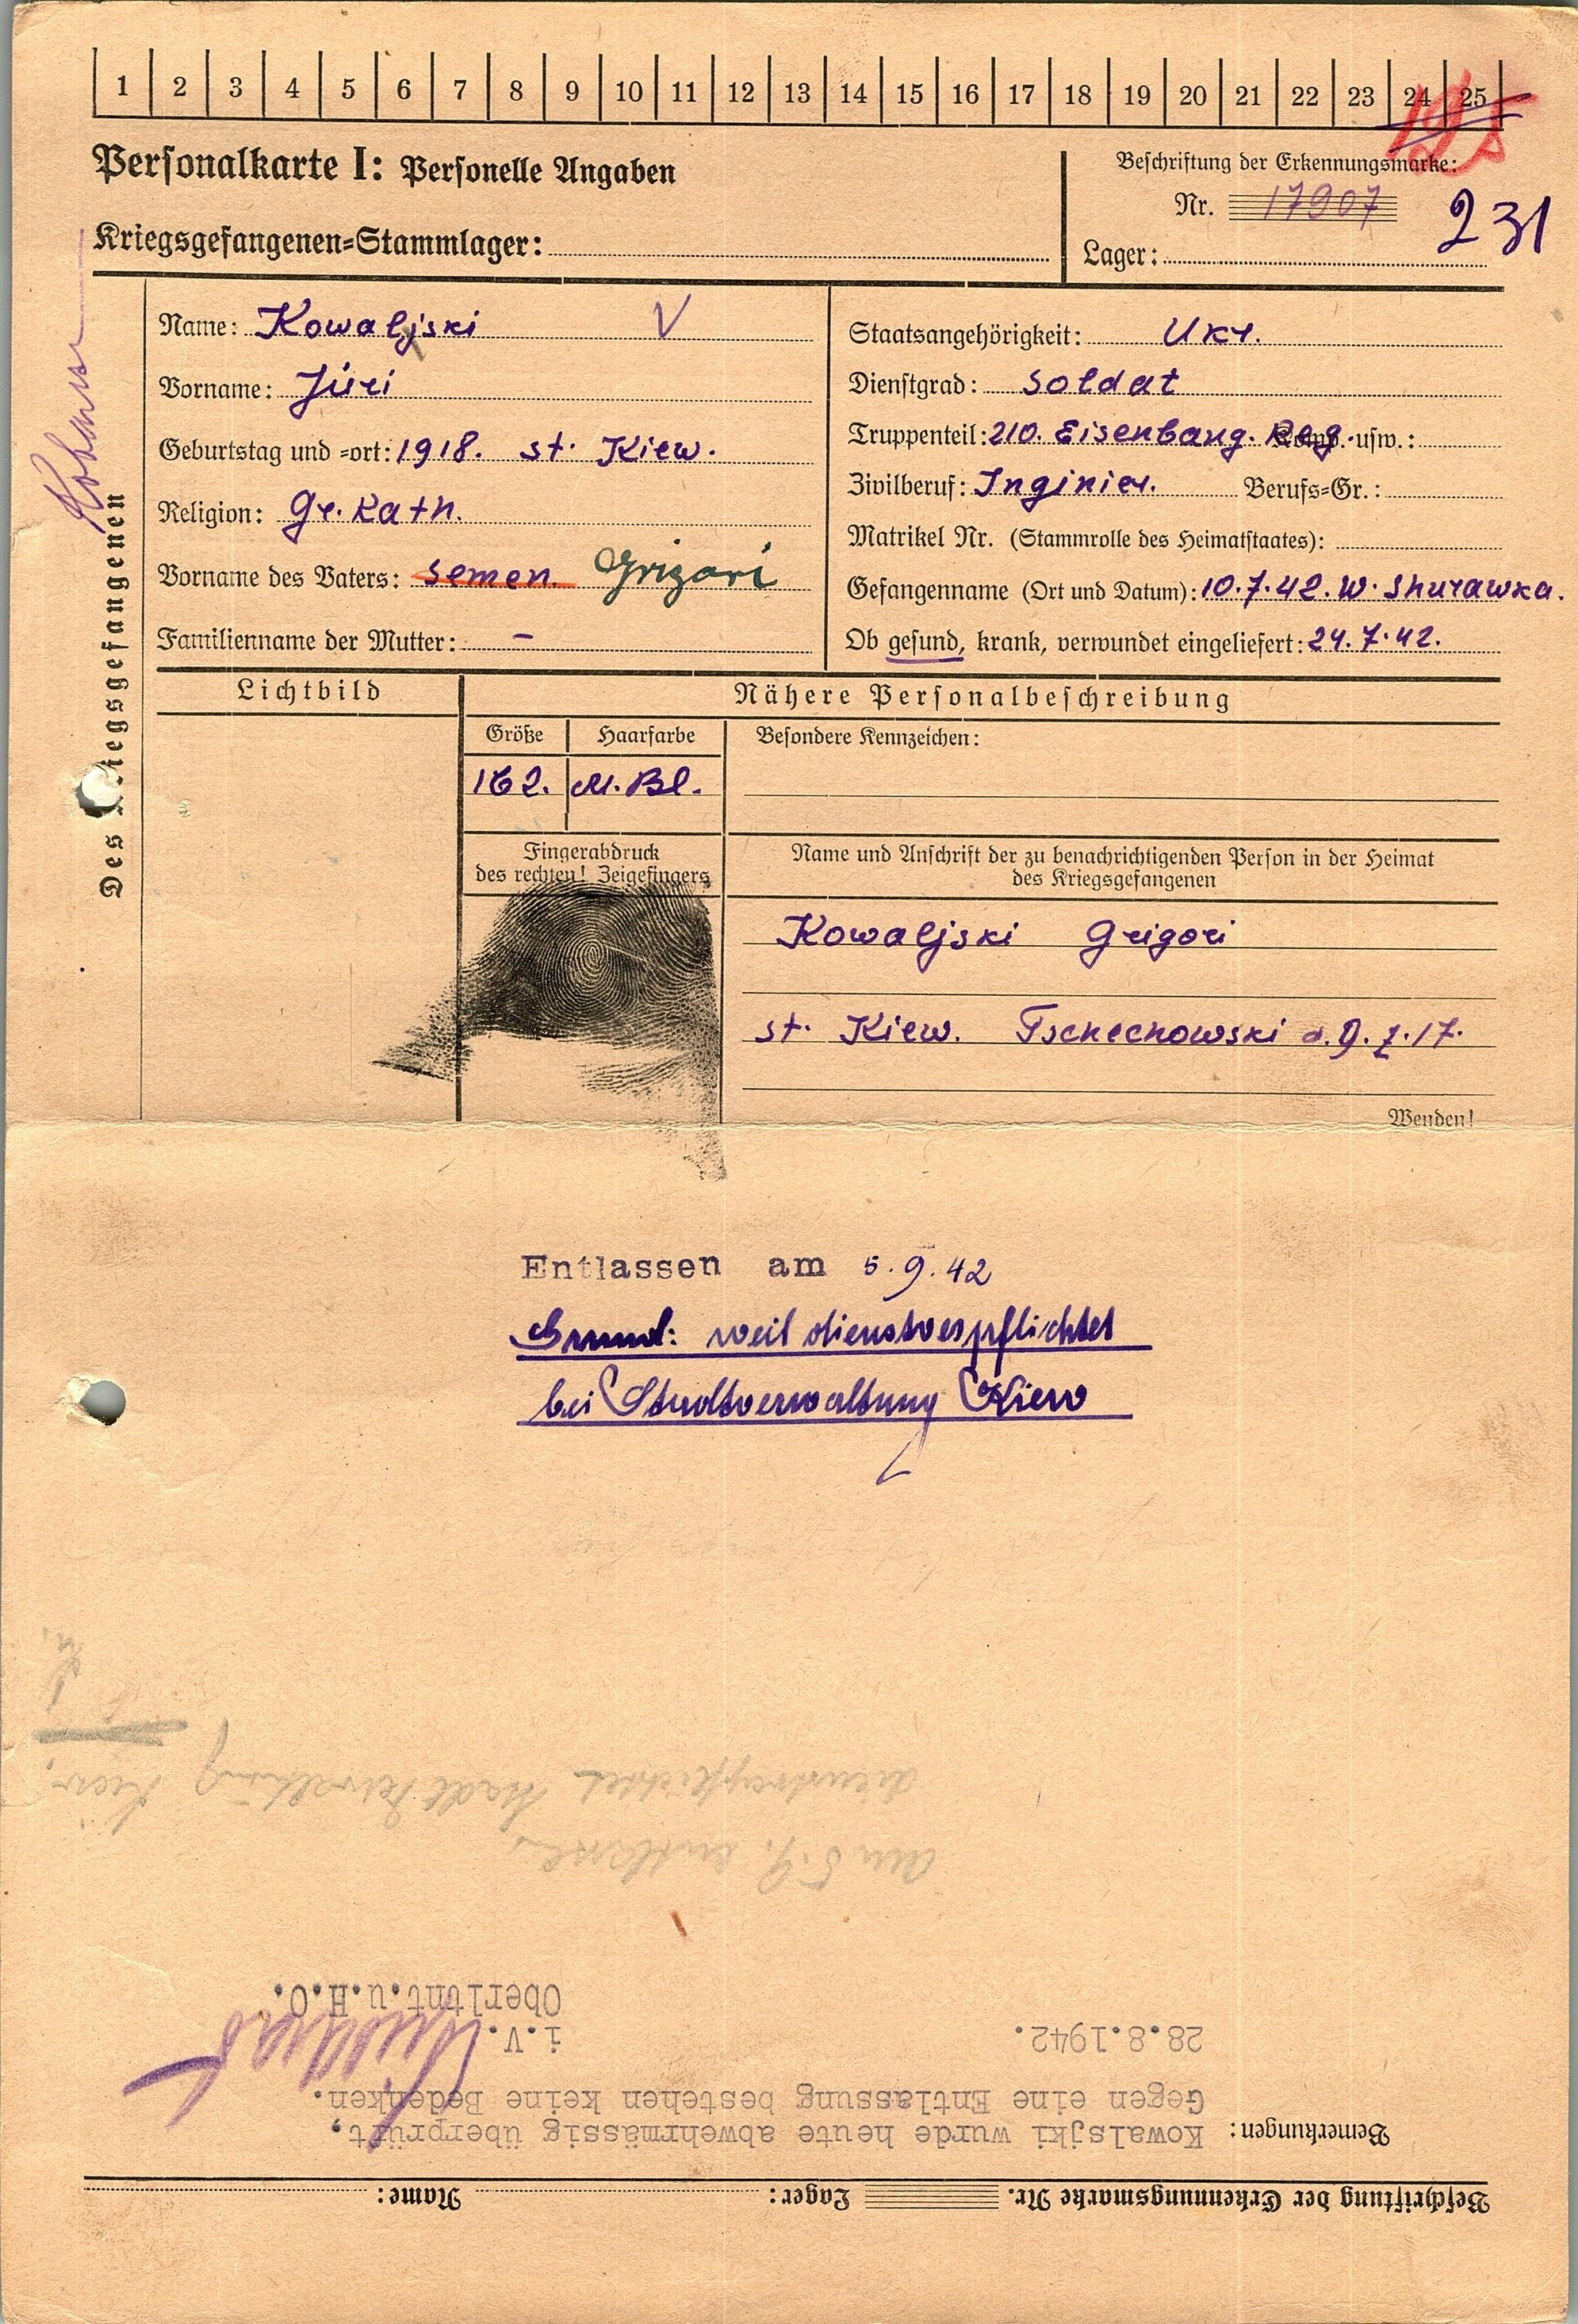 1 2 3 4 5 6 7 8 9 10 11 12 13 14 15 16 17 18 19 20 21 22 23 24 25
Personalkarte I: Personelle Angaben
Kriegsgefangenen-Stammlager:
Beschriftung der Erkennungsmarke:
Nr. 17907
231
Lager:
Des Kriegsgefangenen
Name: Kowaljski V
Vorname: Jùri
Geburtstag und -ort: 1918. st. Kiew.
Religion: Gr. Kath.
Vorname des Vaters: Semen. Grigori
Familienname der Mutter: –
Staatsangehörigkeit: Ukr.
Dienstgrad: Soldat
Truppenteil: 210. Eisenbang. Reg. Komp. usw.:
Zivilberuf: Inginier. Berufs-Gr.:
Matrikel Nr. (Stammrolle des Heimatstaates):
Gefangenname (Ort und Datum): 10.7.42. W. Shurawka.
Ob gesund, krank, verwundet eingeliefert: 24.7.42.
Lichtbild
Nähere Personalbeschreibung
Größe Haarfarbe Besondere Kennzeichen:
162. M. Bl.
Fingerabdruck
des rechten! Zeigefingers
Name und Anschrift der zu benachrichtigenden Person in der Heimat
des Kriegsgefangenen
Kowaljski Grigori
st. Kiew. Tschechowski d. 9. z. 17.
Wenden!
Entlassen am 5.9.42
Grund: weil dienstverpflichtet
bei Stadtverwaltung Kiew
Beschriftung der Erkennungsmarke Nr. Lager: Name:
Bemerkungen: Kowalsjki wurde heute abwehrmässig überprüft,
Gegen eine Entlassung bestehen keine Bedenken.
28.8.1942. i.V.
Oberltnt.u.H.O.
am 5.9. entlassen,
dienstverpflichtet Stadtverwaltung Kiew.